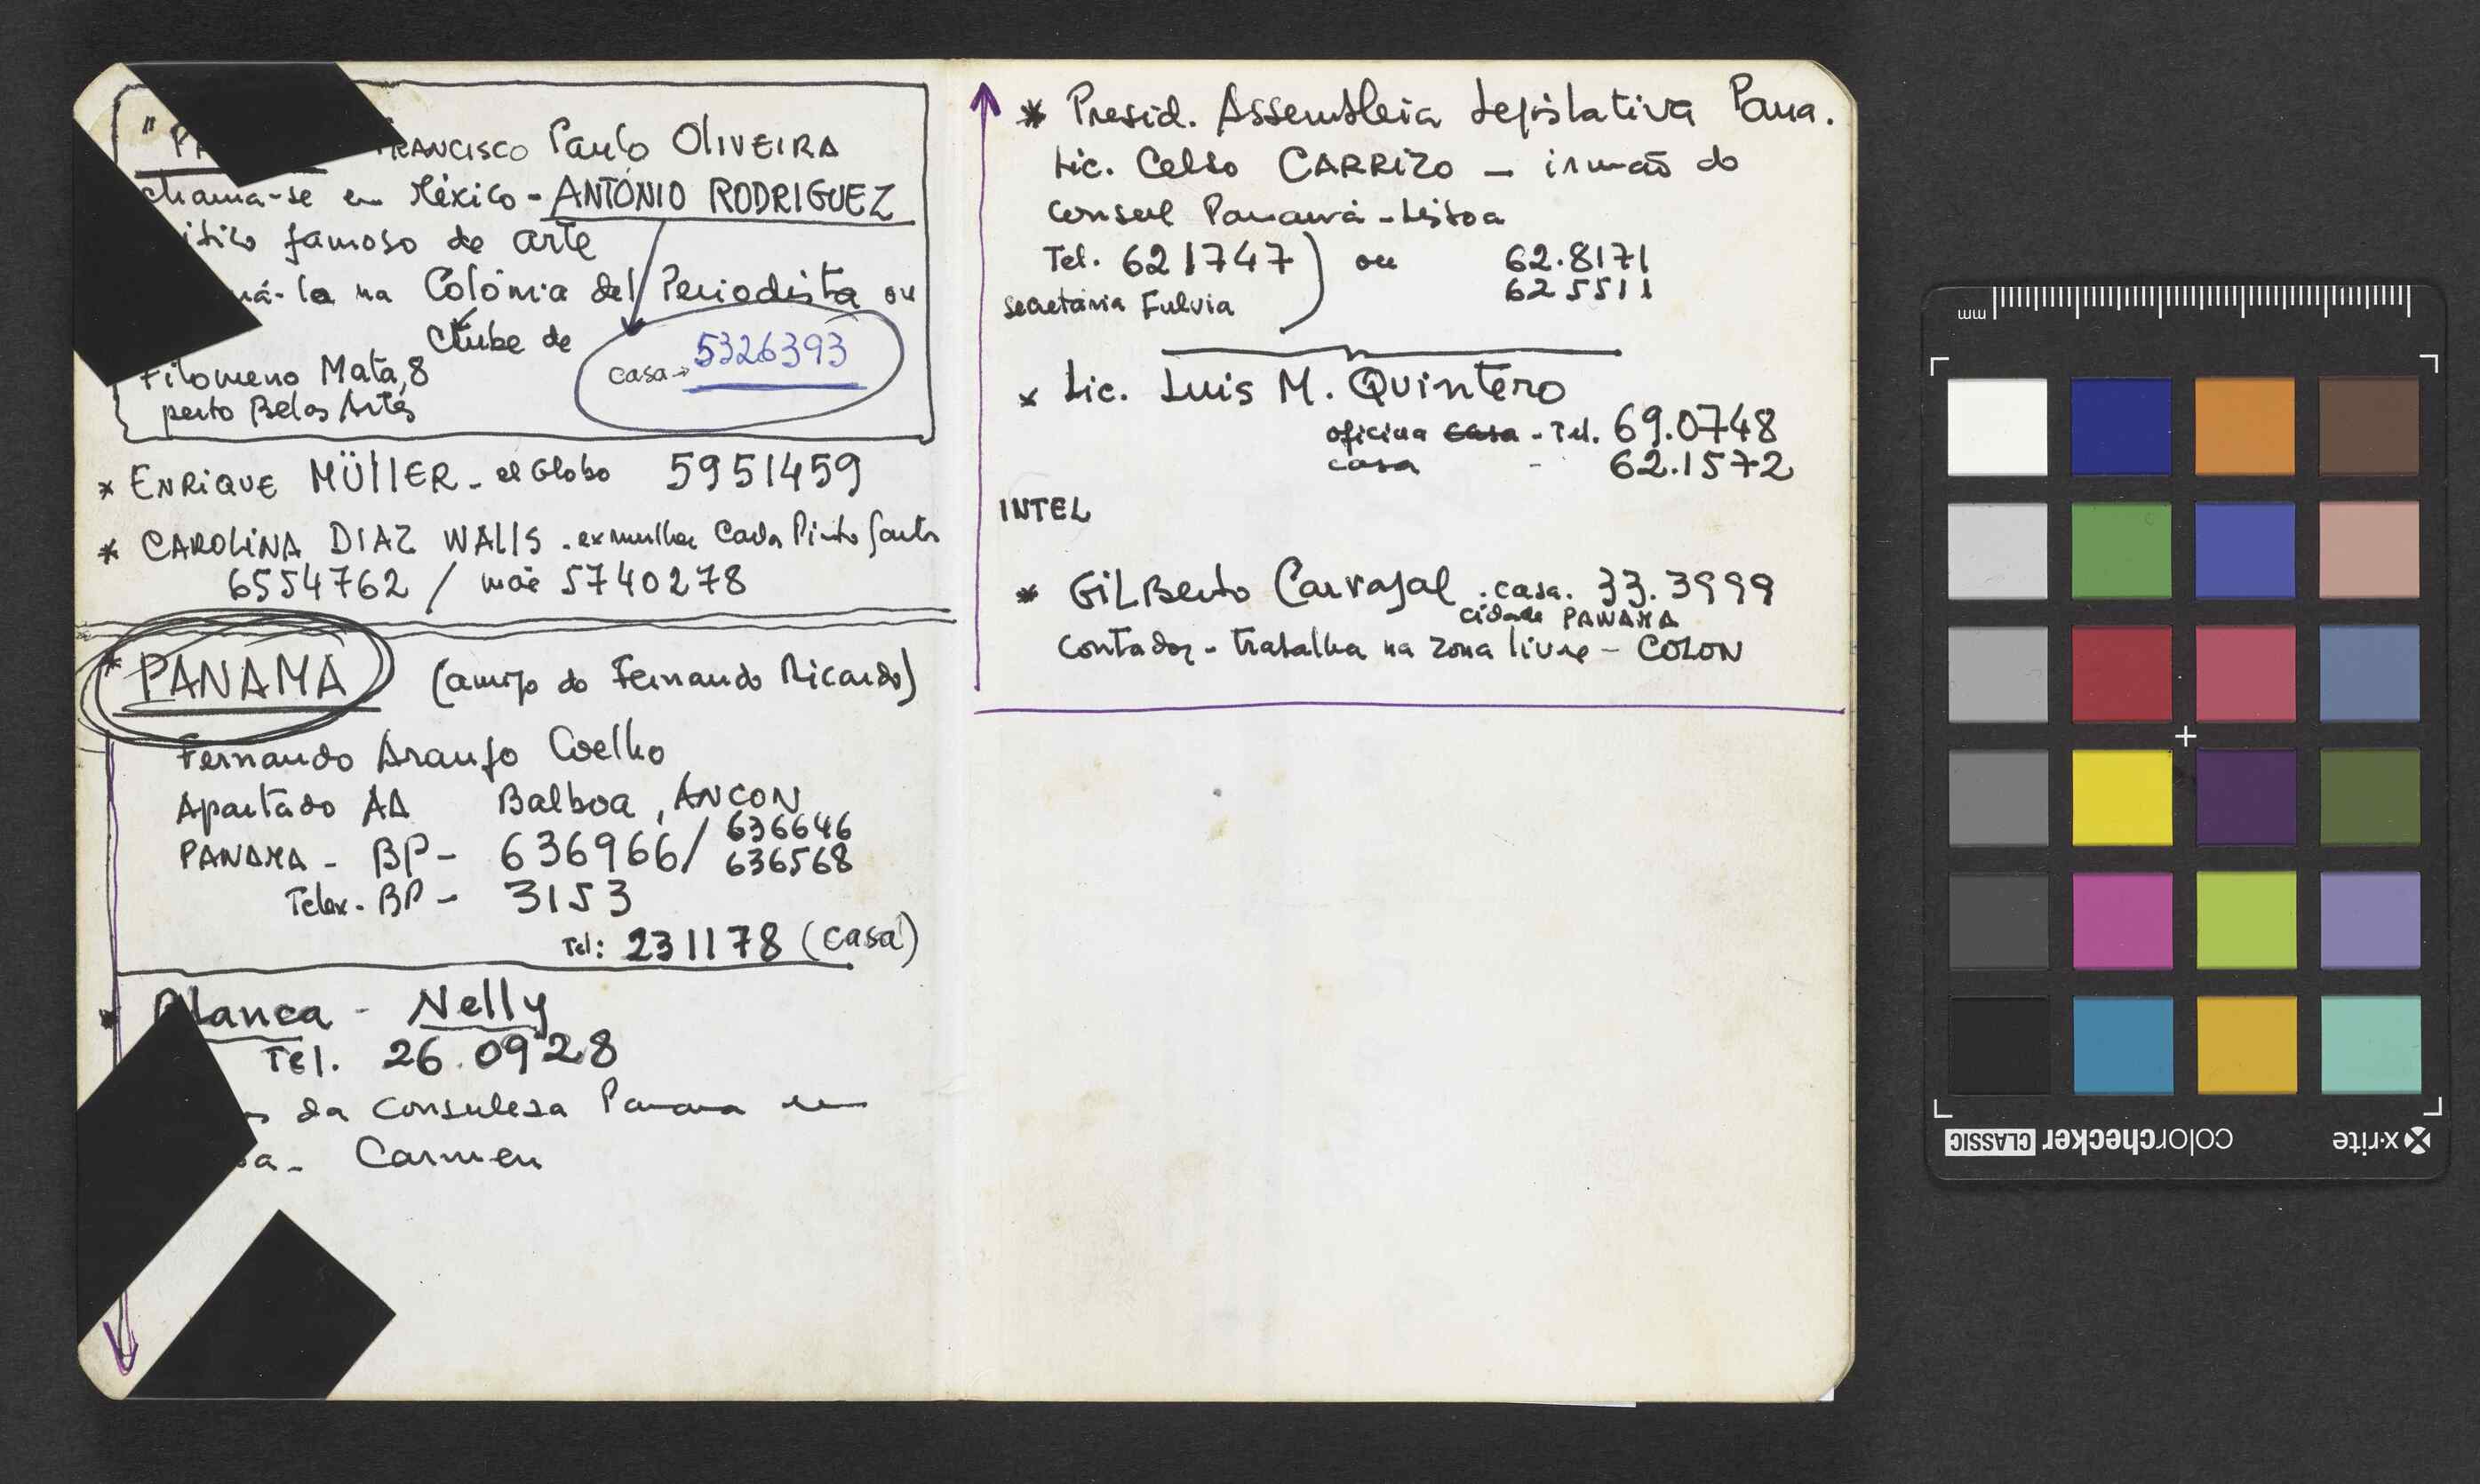 FRANCISCO Paulo OLIVEIRA
chama-se em México - ANTÓNIO RODRIGUEZ
famoso de arte
na Colónia del Periodista ou
Clube de
casa → 5326393
Filomeno Mata, 8
perto Belas Artes
* ENRIQUE MÜLLER - el Globo 5951459
* CAROLINA DIAZ WALLS - ex mulher Pinto
6554762 / mãe 5740278
* PANAMA (amigo do Fernando Ricardo)
Fernando Araujo Coelho
Apartado AA Balboa, ANCON
636646
PANAMA - BP - 636966/ 636568
Telex - BP - 3153
Tel: 231178 (casa)
* Blanca - Nelly
Tel. 26.0928
da consulesa Panama em
Carmen
* Presid. Assembleia Legislativa Pana.
Lic. Celso CARRIZO - irmão do
consul Panamá - Lisboa
Tel. 621747) ou 62.8171
625511
secretária Fulvia
* Lic. Luis M. Quintero
oficina casa - Tel. 69.0748
casa - 62.1572
INTEL
* GILBerto Carvajal . casa. 33.3999
cidade PANAMA
contador - trabalha na zona livre - COLON
mm
colorchecker CLASSIC
x-rite